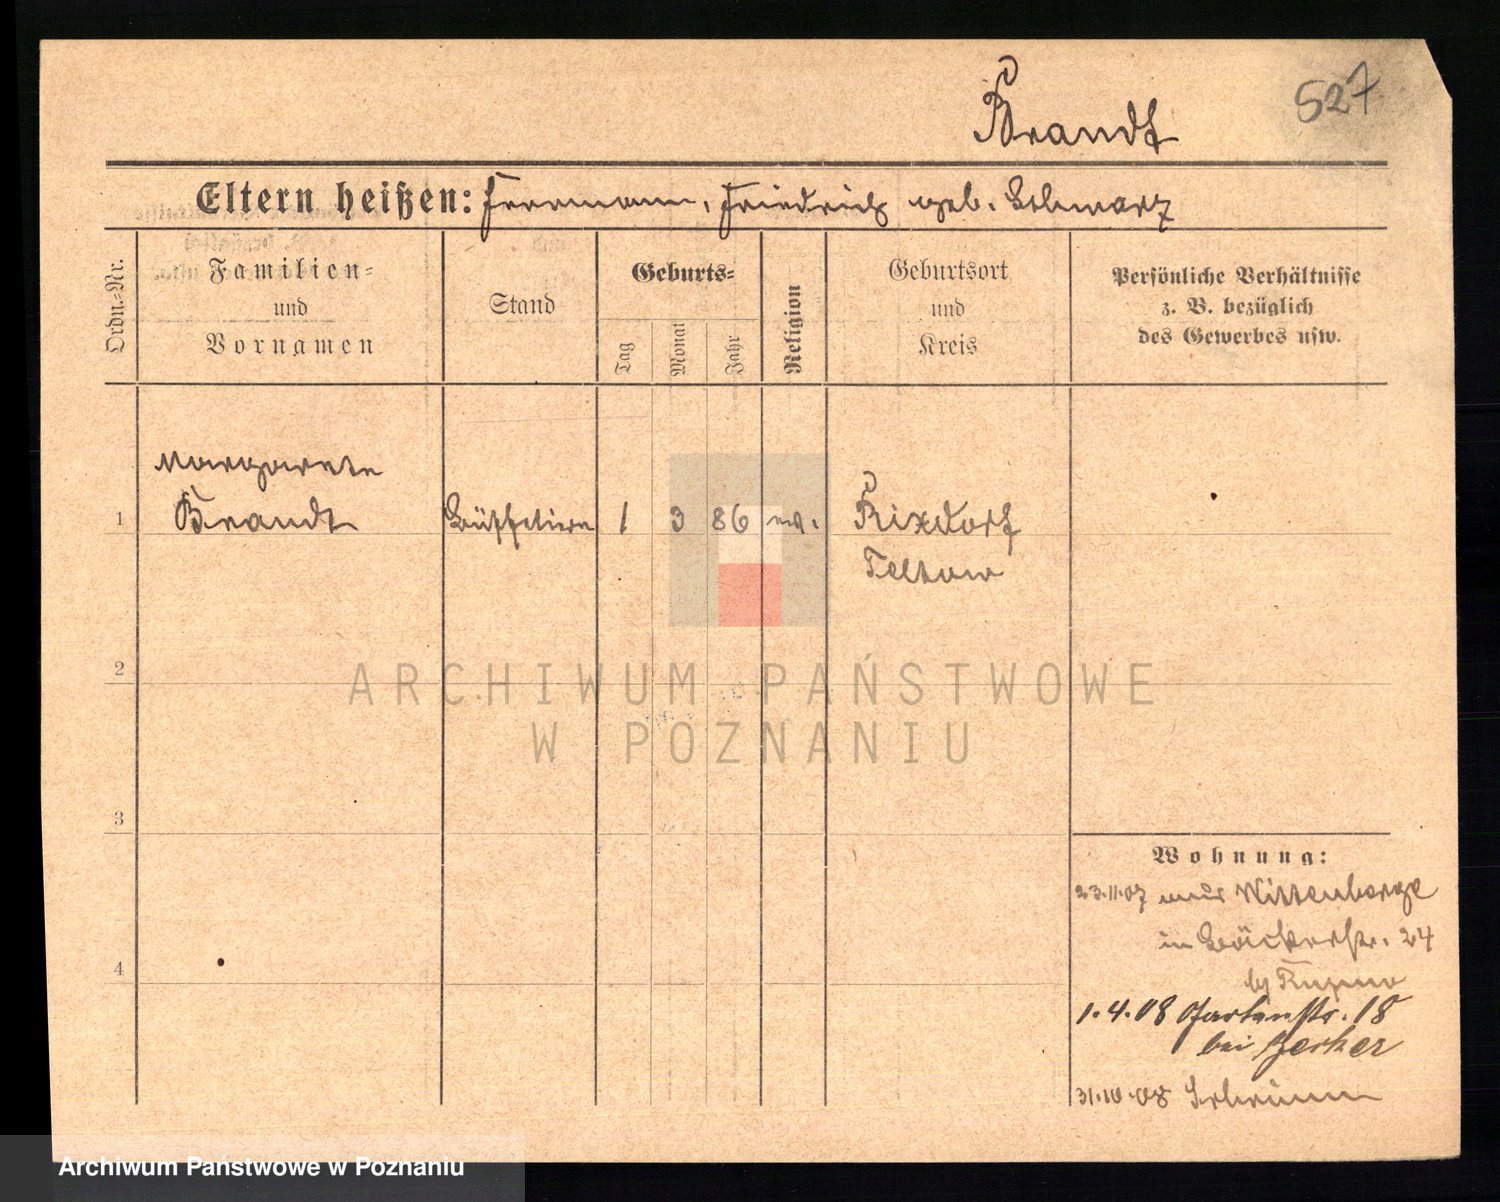 527
Brandt
Eltern heißen: Hermann, Friedrich geb. Schwarz
Ordn.-Nr.
Familien-
und
Vornamen
Stand
Geburts-
Tag
Monat
Jahr
Religion
Geburtsort
und
Kreis
Persönliche Verhältnisse
z. B. bezüglich
des Gewerbes usw.
Margarete
1 Brandt Büffetiere 1 3 86 ev. Rixdorf
Teltow
2
ARCHIWUM PAŃSTWOWE
W POZNANIU
3
Wohnung:
23.11.07 aus Wittenberge
in Bäckerstr. 24
by
4
1.4.08 Gartenstr. 18
bei Zerker
31.10.08 Schrimm
Archiwum Państwowe w Poznaniu